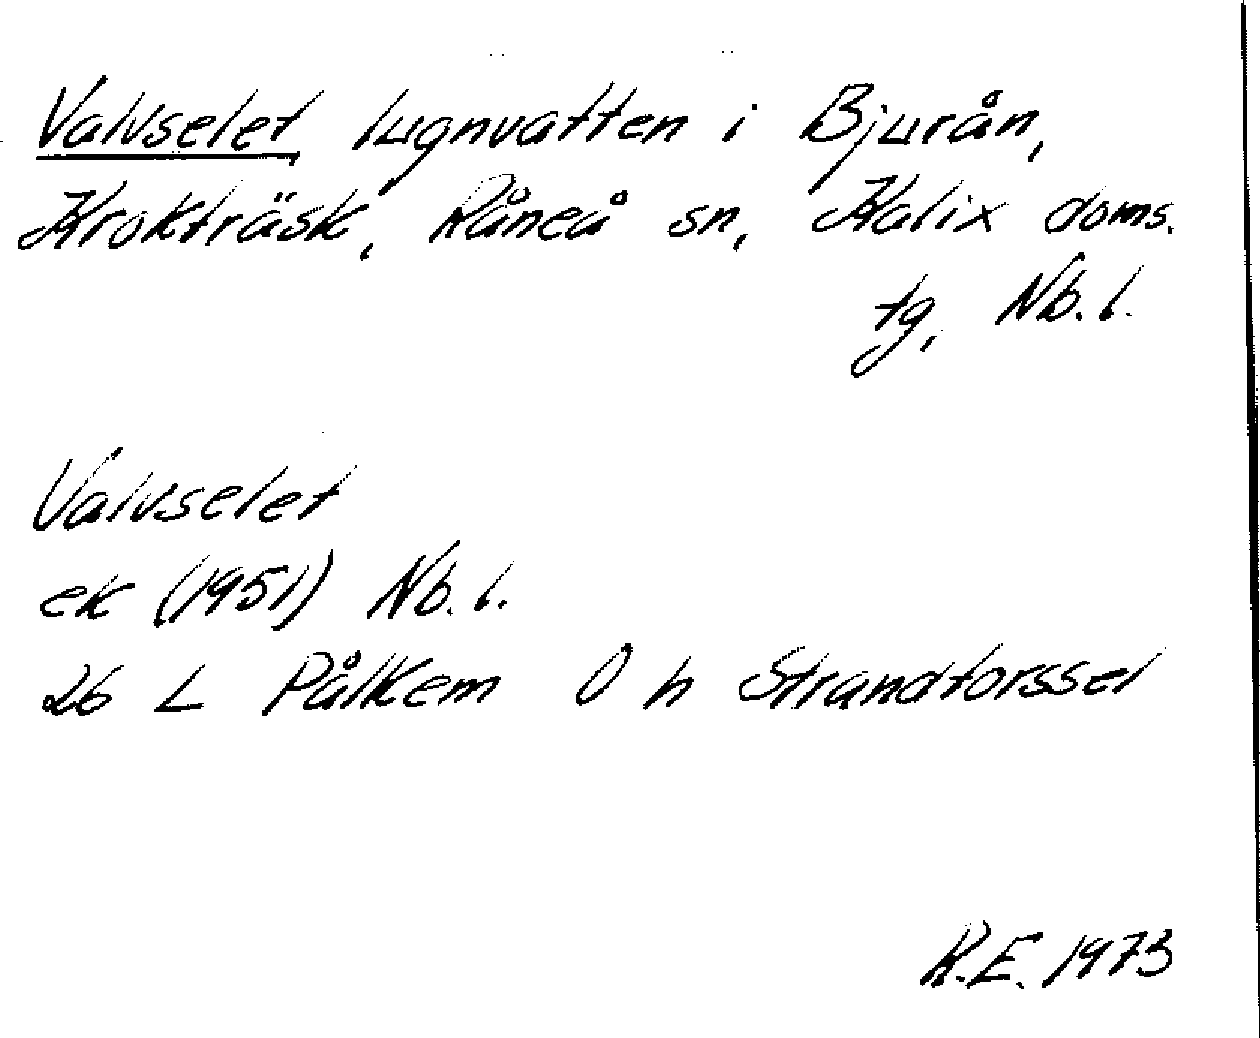 Valvselet, lugnvatten i Bjurån,
Krokträsk, Råneå sn, Kalix doms.
tg, Nb. l.
Valvselet
ek (1951) Nb. l.
26 L Pålkem O h Strandforssel
R.E. 1973